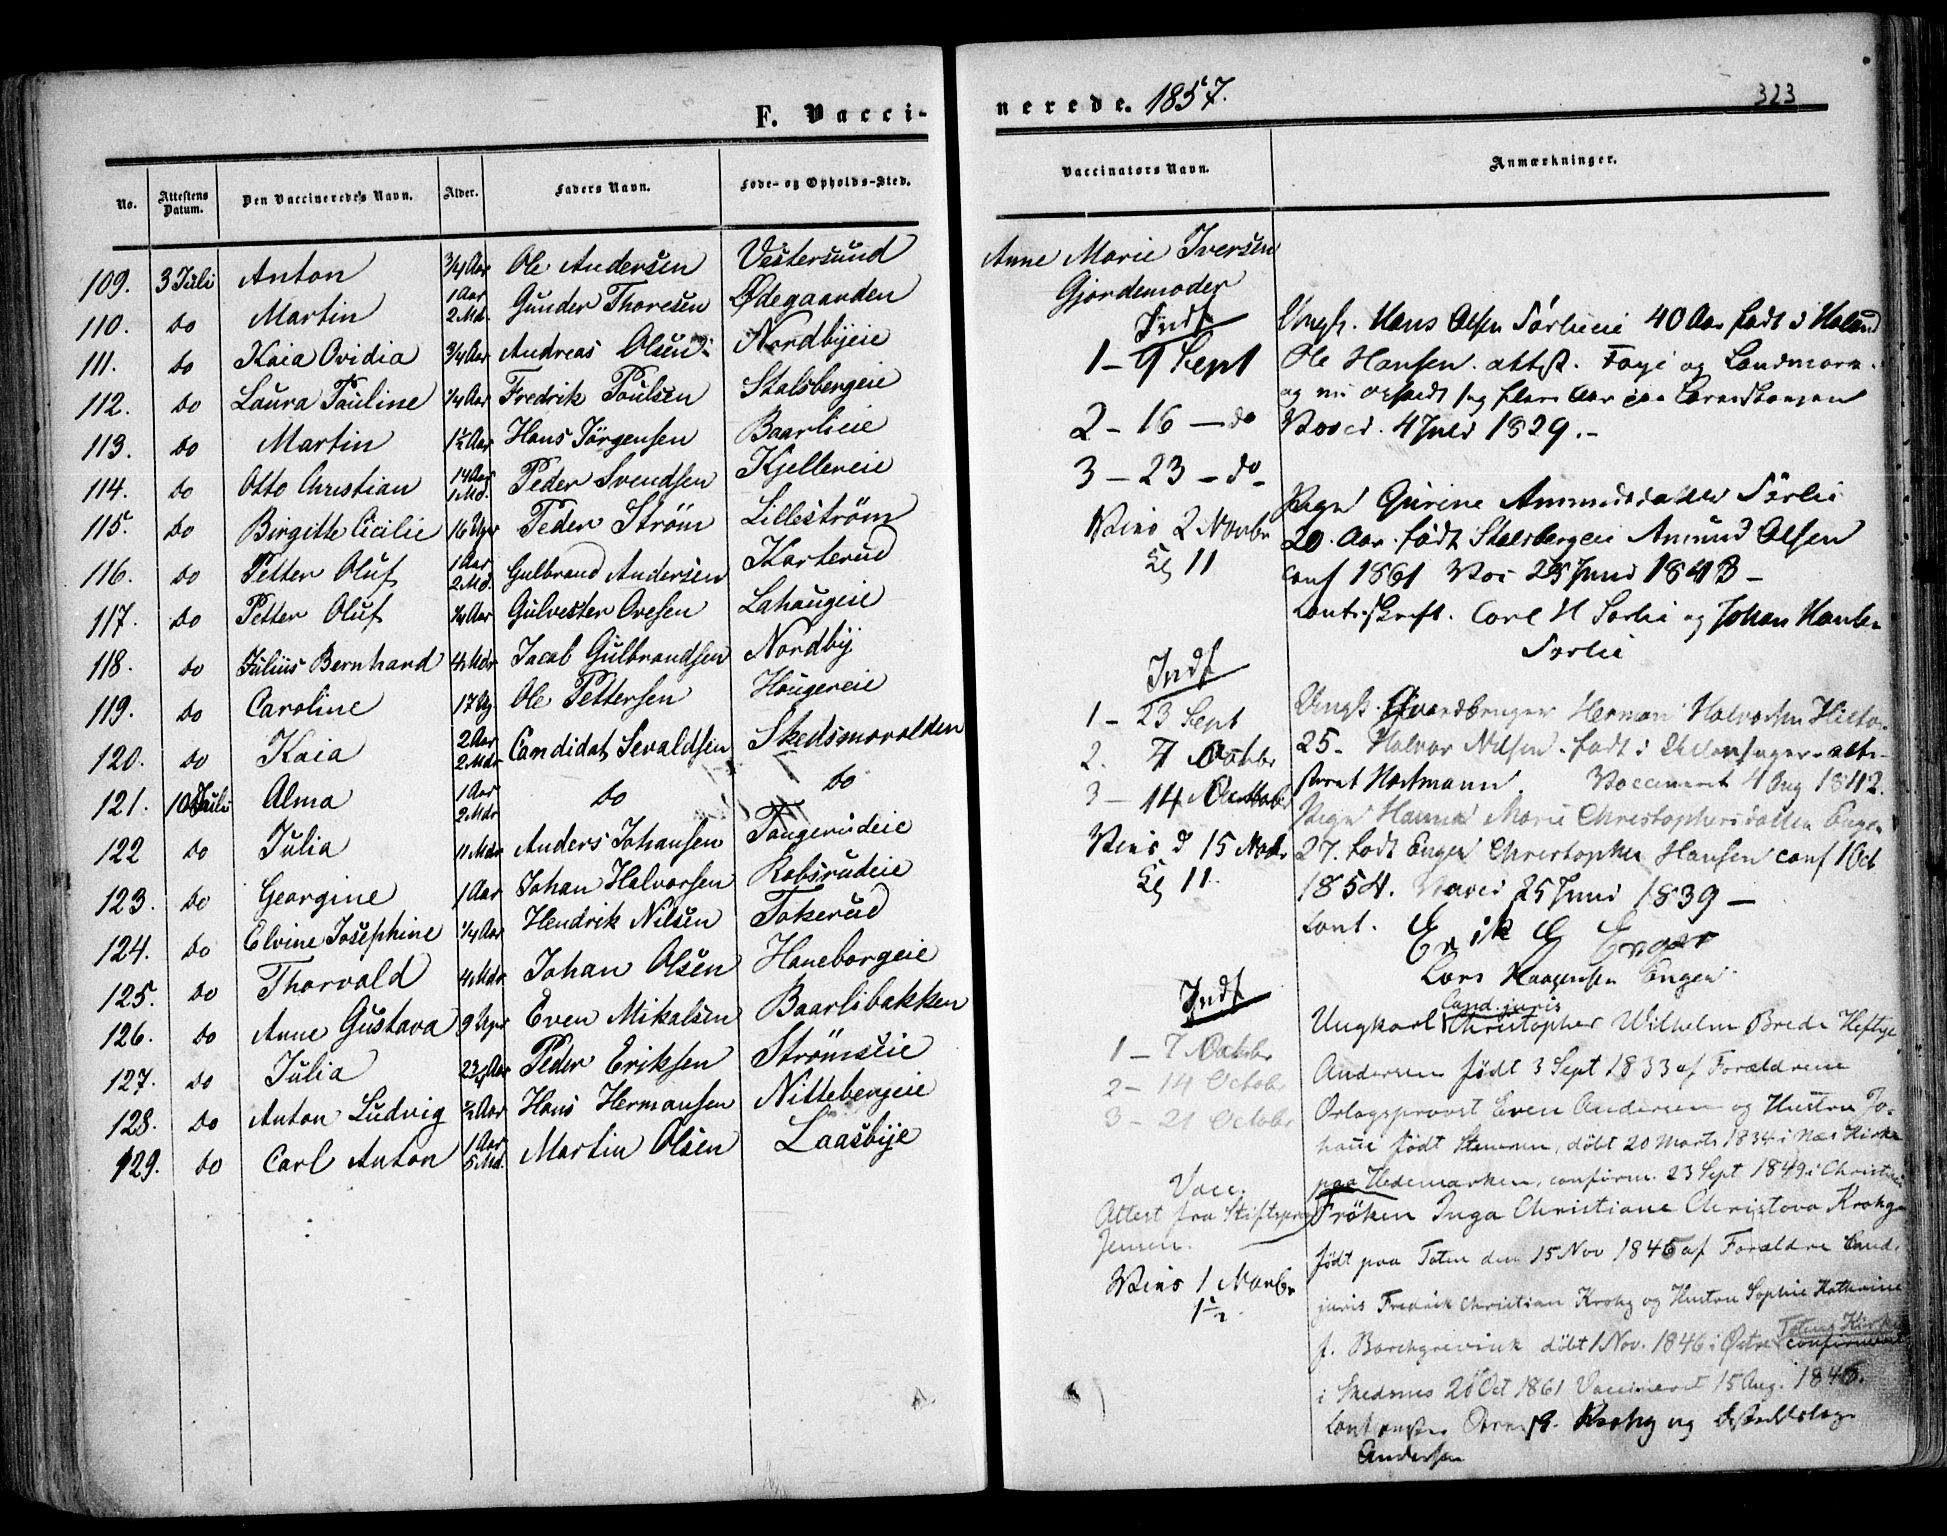 F. Vacci-
No. Attestens Datum. Den Vaccineredes Navn. Alder. Faders Navn. Føde- og Opholds-Sted.
109. 3 Juli Anton 3/4 Aar Ole Andersen Vestersund
110. do Martin 1 Aar 2 Md. Gunder Thoresen Ødegaarden
111. do Kaia Ovidia 3/4 Aar Andreas Olsen Nordbyeie
112. do Laura Pauline 1/4 Aar Fredrik Poulsen Stalsbergeie
113. do Martin 1½ Aar Hans Jørgensen Baarlieie
114. do Otto Christian 1 Md. Peder Svendsen Kjellereie
115. do Birgitte Cicilie 16 Uger Peder Strøm Lillestrøm
116. do Petter Oluf 1 Aar 2 Md. Gulbrand Andersen Karterud
117. do Petter Oluf Aar Gulvester Ovesen Lahaugeie
118. do Julius Bernhard Mdr Jacob Gulbrandsen Nordby
119. do Caroline 17 Ug Ole Pettersen Hougereie
120. do Kaia 2 Aar 2 Mdr Candidat Sevaldsen Skedsmovolden
121. 10 Juli Alma 1 Aar 2 Mdr do do
122 do Julia 11 Mdr Anders Johansen Tangerudeie
123. do Georgine 1 Aar Johan Halvorsen Robsrudeie
124. do Elvine Josephine 1/4 Aar Hendrik Nilsen Tokerud
125. do Thorvald 4 Mdr Johan Olsen Haneborgeie
126. do Anne Gustava 9 Uger Even Mikalsen Baarlibakken
127. do Julia Aar Peder Eriksen Strømseie
128. do Anton Ludvig ½ Aar Hans Hermansen Nittebergeie
129. do Carl Anton 1 Aar 5 Md. Martin Olsen Laasbye
nerede. 1857.
323
Vaccinators Navn. Anmærkninger.
Anne Marie Iversen
Gjordemoder
Indf
1 - 9 Sept
2 - 16 - do
3 - 23 - do
Vies 2 Novbr
Kl 11
Ungk. Hans Olsen Sørlieie 40 Aar født i Holand
Ole Hansen. attest. Foye og Landmark.
og nu opholdt sig flere Aar
Vacci. 4 Juli 1829.-
Pige Gurine Ammundsdatter Sørlie
20. Aar. født Stalsbergeie Amund Olsen
conf 1861 Vac 25 Juni 1843 -
Cauts. skrift. Carl H Sørlie og Johan
Sørlie
Indf
1 - 23 Sept
2. 7 Octobr
3 - 14 Octobr
Vies d 15 Novbr
Kl 11.
Ungk. Gaardbruger Herman Halvorsen
25- Halvor Nilsen. født i
Hartmann. Vaccineret 4 Aug 1842.
Pige Hanna Marie Christophersdatter Engen
27. født Engen Christopher Hansen conf 1 Oct
1854. Vacci 25 Juni 1839 -
Caut. Erik E Engen
Lars Haagensen Engen.
Indf
1 - 7 Octobr
2 - 14 Octobr
3 - 21 Octobr
Vacc.
Attest fra Stiftsprovst
Jensen.
Vies 1 Novbr
Cand. juris
Ungkarl Christopher Wilhelm Brede Heftye
Andersen født 3 Sept 1833 af Forældrene
Orlogsprovst Even Andersen og Hustru Jo-
hanne født Stenersen, døbt 20 Marts 1834 i Næs Kirke
paa Hedemarken, confirm. 23 Sept 1849 i Christiania
Frøken Inga Christiane Christova Krohg
født paa Toten den 15 Nov 1845 af Forældre Cand.
juris Fredrik Christian Krohg og Hustru Sophie Kathrine
f. Borchgrevink døbt 1 Nov. 1846 i Østre Totens Kirke confirmeret
i Skedsmo 20 Oct 1861 Vaccineret 15 Aug. 1846.
Krohg og
Andersen